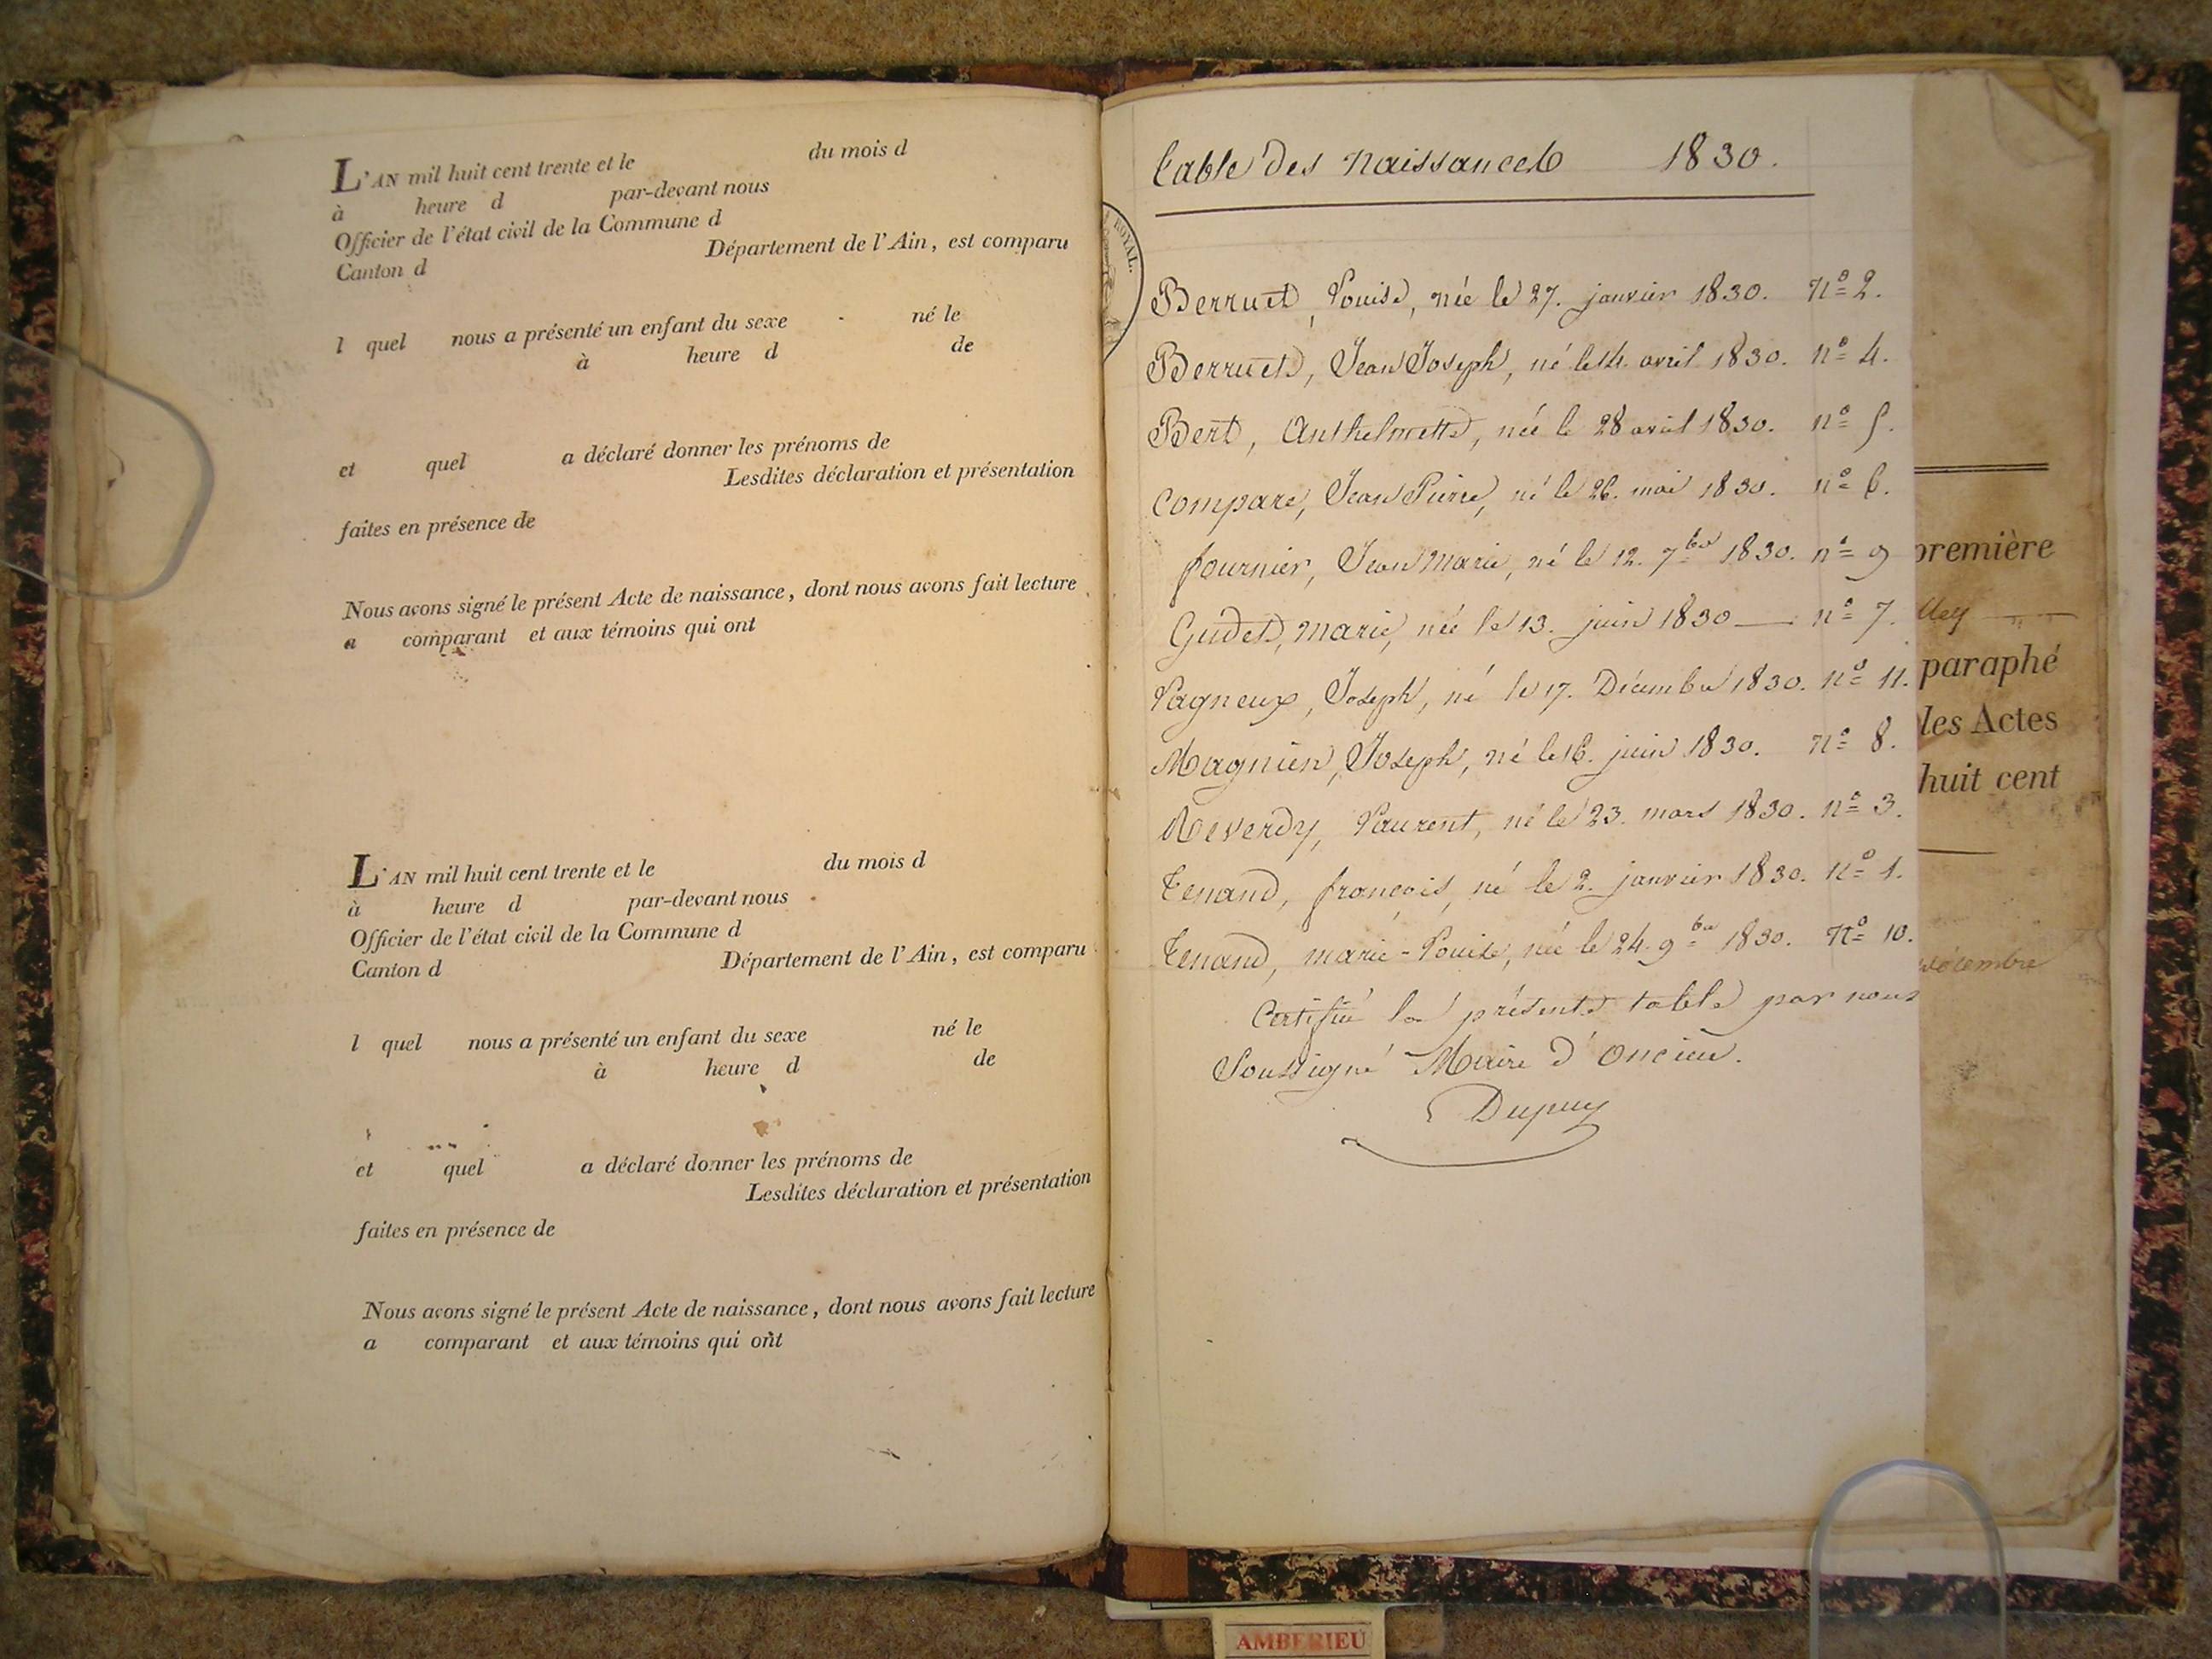 L'AN mil huit cent trente et le du mois d
à heure d par-devant nous
Officier de l'état civil de la Commune d
Canton d Département de l'Ain, est comparu
l quel nous a présenté un enfant du sexe né le
à heure d de
et quel a déclaré donner les prénoms de
Lesdites déclaration et présentation
faites en présence de
Nous avons signé le présent Acte de naissance, dont nous avons fait lecture
a comparant et aux témoins qui ont
L'AN mil huit cent trente et le du mois d
à heure d par-devant nous
Officier de l'état civil de la Commune d
Canton d Département de l'Ain, est comparu
l quel nous a présenté un enfant du sexe né le
à heure d de
et quel a déclaré donner les prénoms de
Lesdites déclaration et présentation
faites en présence de
Nous avons signé le présent Acte de naissance, dont nous avons fait lecture
a comparant et aux témoins qui ont
table des naissances 1830.
ROYAL.
Berruet, Louise, née le 27. janvier 1830. nº 2.
Berruet, Jean Joseph, né le 14. avril 1830. nº 4.
Bert, Anthelmette, née le 28 avril 1830. nº 5.
Compare, Jean Pierre, né le 26. mai 1830. nº 6.
fournier, Jean Marie, né le 12. 7bre 1830. nº 9
Gudet, marie, née le 13. juin 1830 — nº 7.
Lagneux, Joseph, né le 17. Décembre 1830. nº 11.
Magnien, Joseph, né le 16. juin 1830. nº 8.
Reverdy, Laurent, né le 23. mars 1830. nº 3.
tenand, françois, né le 2. janvier 1830. nº 1.
tenand, marie-Louise, née le 24. 9bre 1830. nº 10.
Certifié la présente table par nous
Soussigné Maire d'oncieu.
Dupuy
première
lley
paraphé
les Actes
huit cent
décembre
AMBERIEU